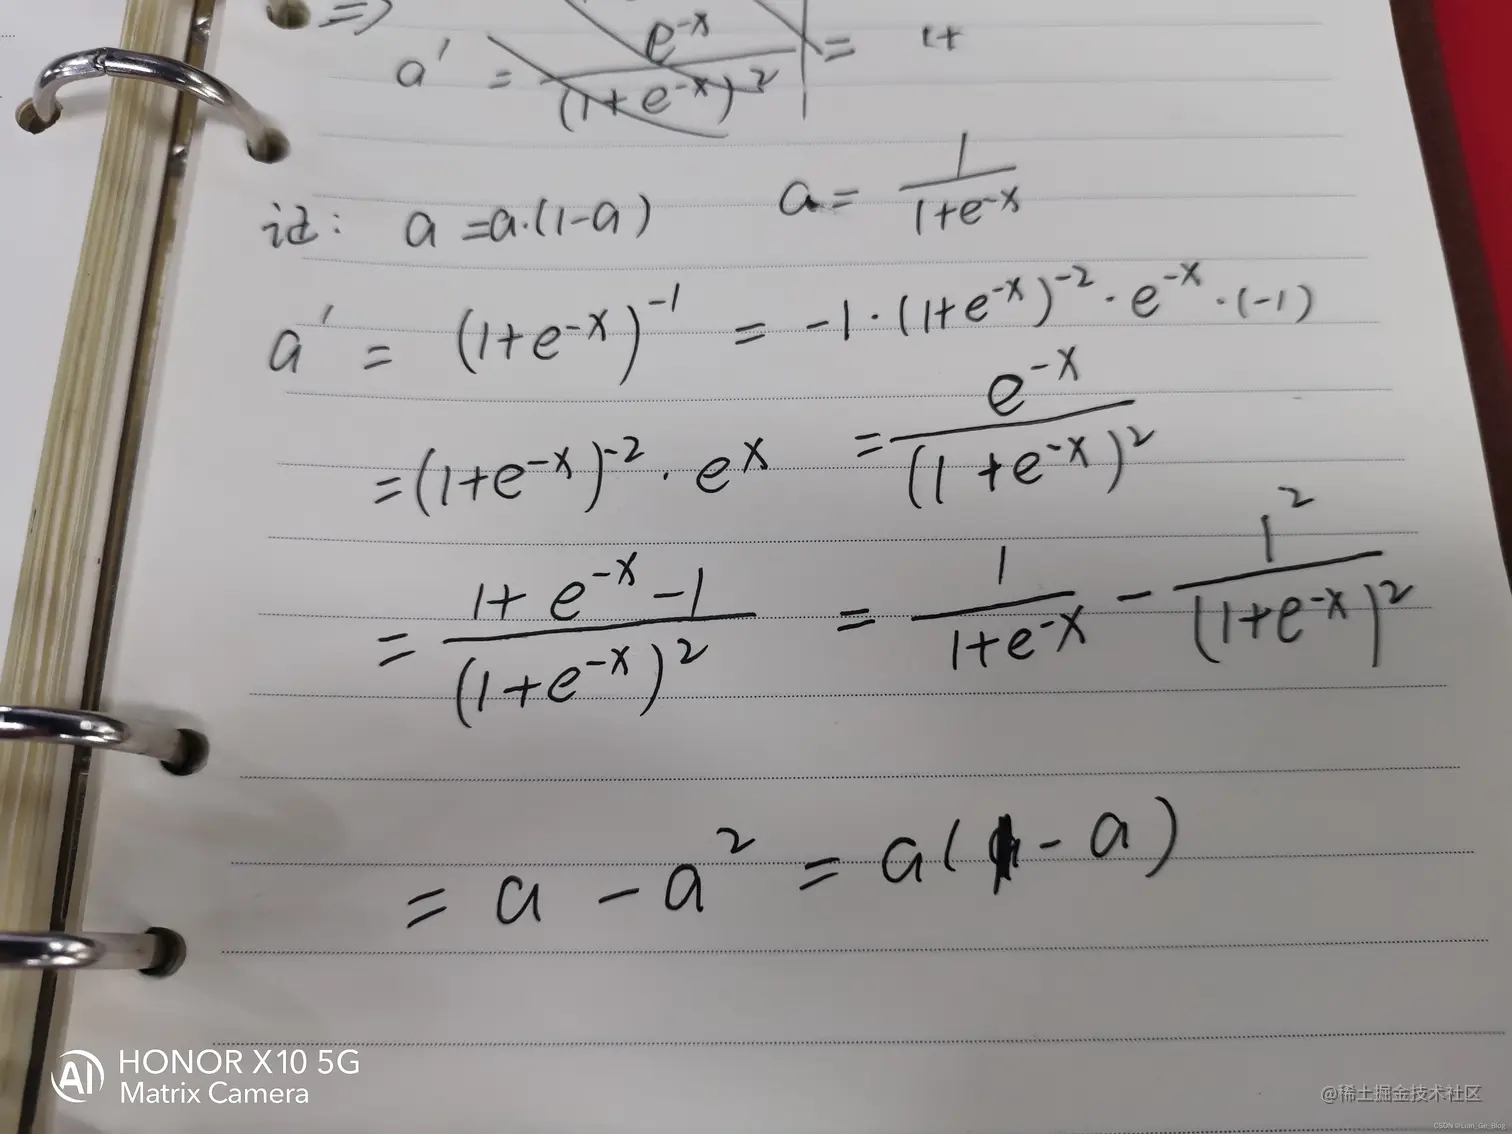 ⇒
a' = e^{-x}/(1+e^{-x})^2 = 1+
证: a = a·(1-a)    a = 1/(1+e^{-x})
a' = (1+e^{-x})^{-1} = -1·(1+e^{-x})^{-2}·e^{-x}·(-1)
= (1+e^{-x})^{-2}·e^x = e^{-x}/(1+e^{-x})^2
= (1+e^{-x}-1)/(1+e^{-x})^2 = 1/(1+e^{-x}) - 1^2/(1+e^{-x})^2
= a - a^2 = a(1-a)
HONOR X10 5G
Matrix Camera
@稀土掘金技术社区
CSDN @Lian_Ge_Blog